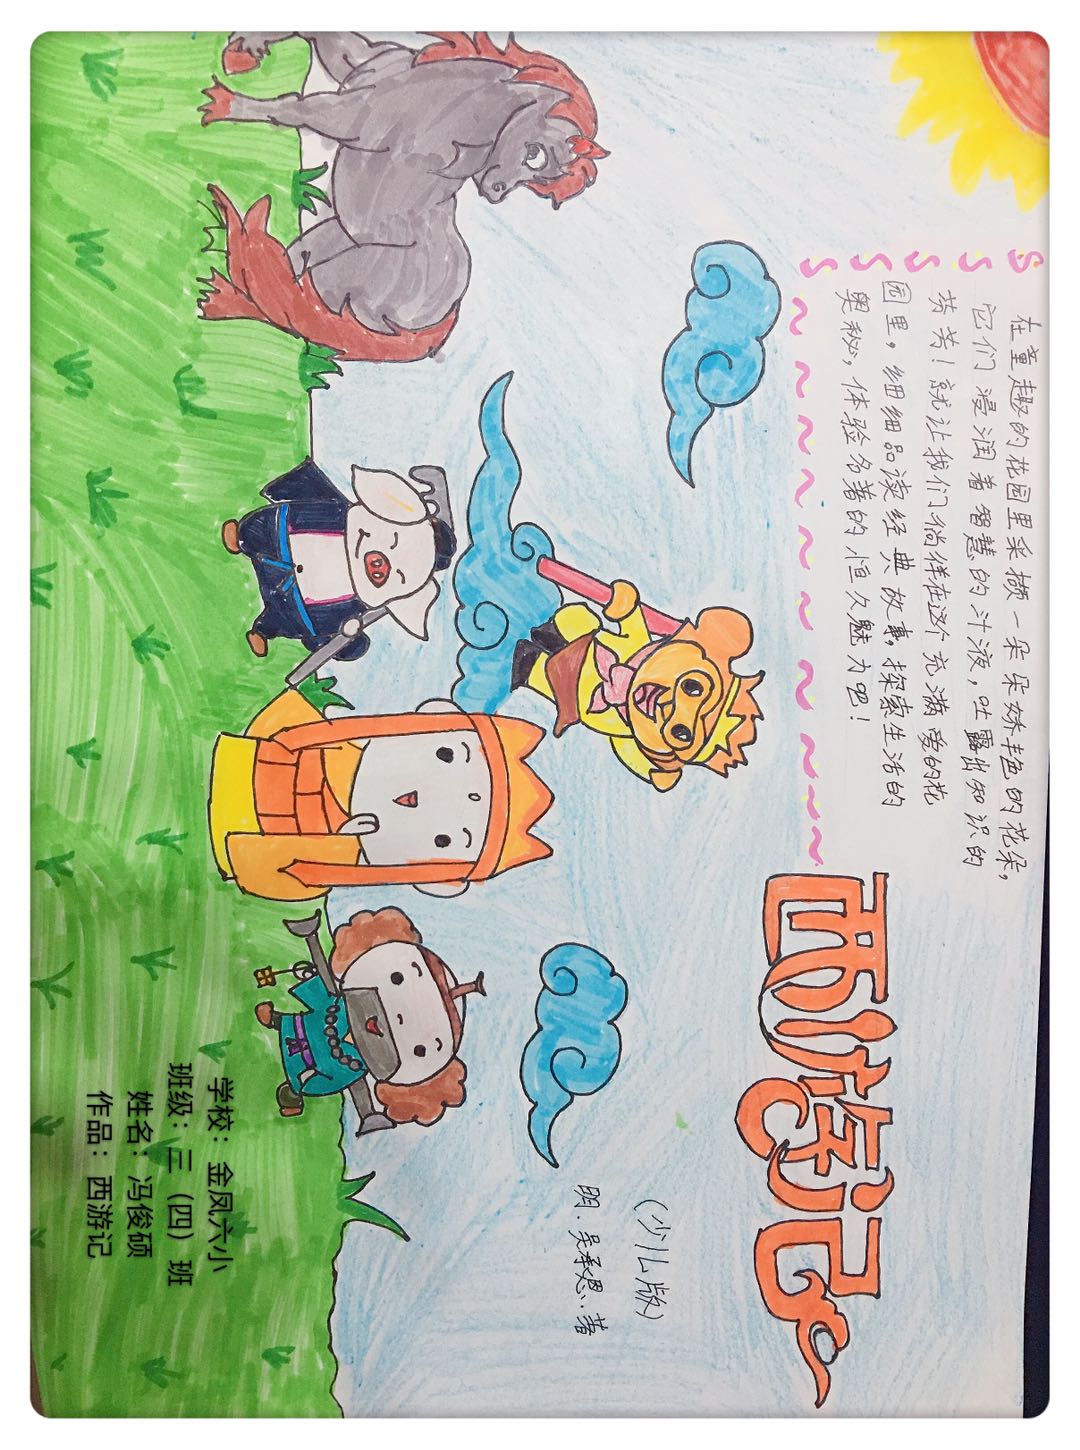 在童趣的花园里采撷一朵朵娇丰色的花朵，
它们浸润着智慧的汁液，吐露出知识的
芬芳！就让我们徜徉在这个充满爱的花
园里，细细品读经典故事，探索生活的
奥秘，体验名著的恒久魅力吧！
西游记
（少儿版）
明．吴承恩．著
学校：金凤六小
班级：三（四）班
姓名：冯俊硕
作品：西游记